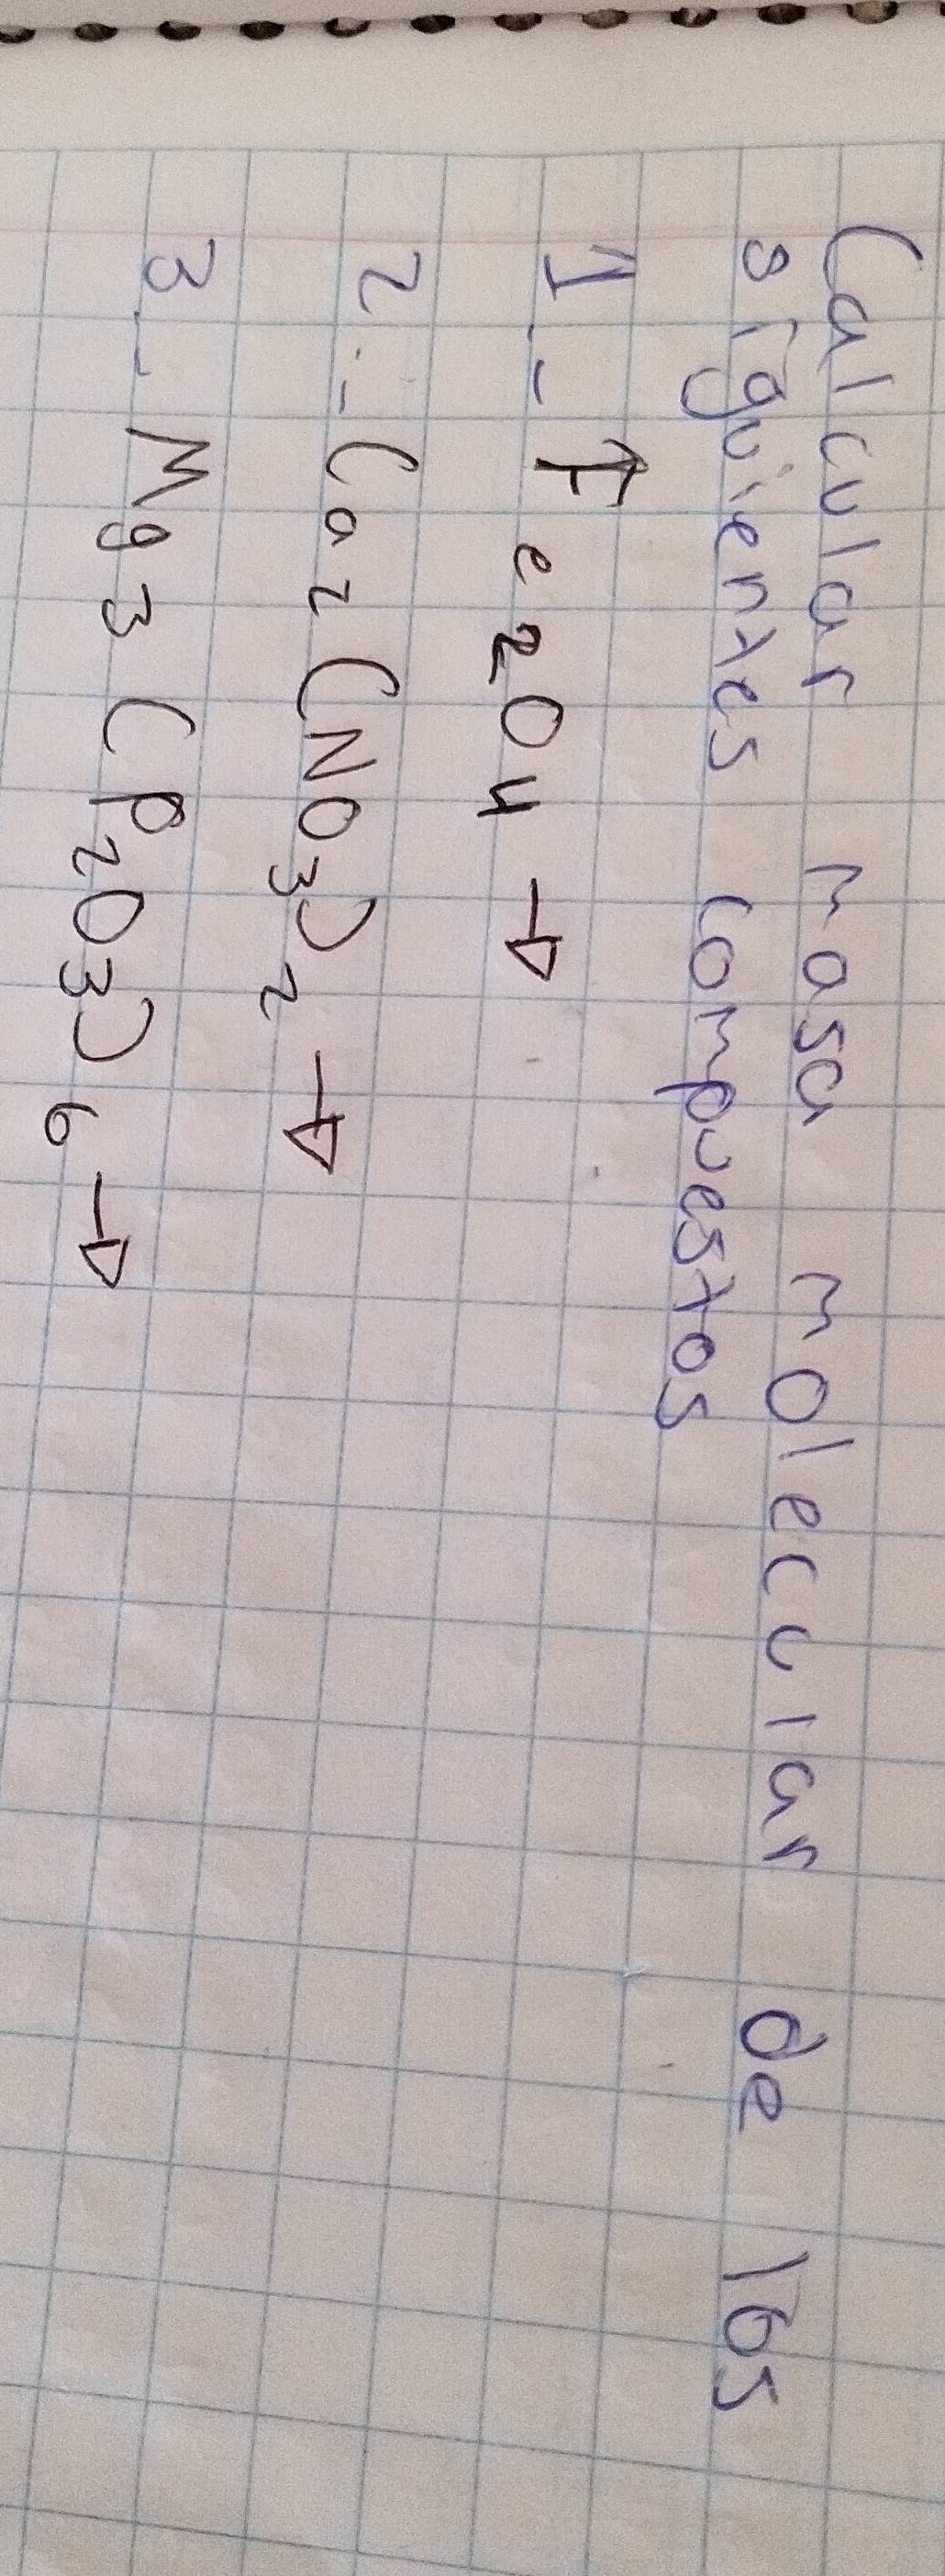 Calcular masa molecular de los
siguientes compuestos
1.- Fe2O4 →
2.- Ca2(NO3)2 →
3.- Mg3(P2O3)6 →